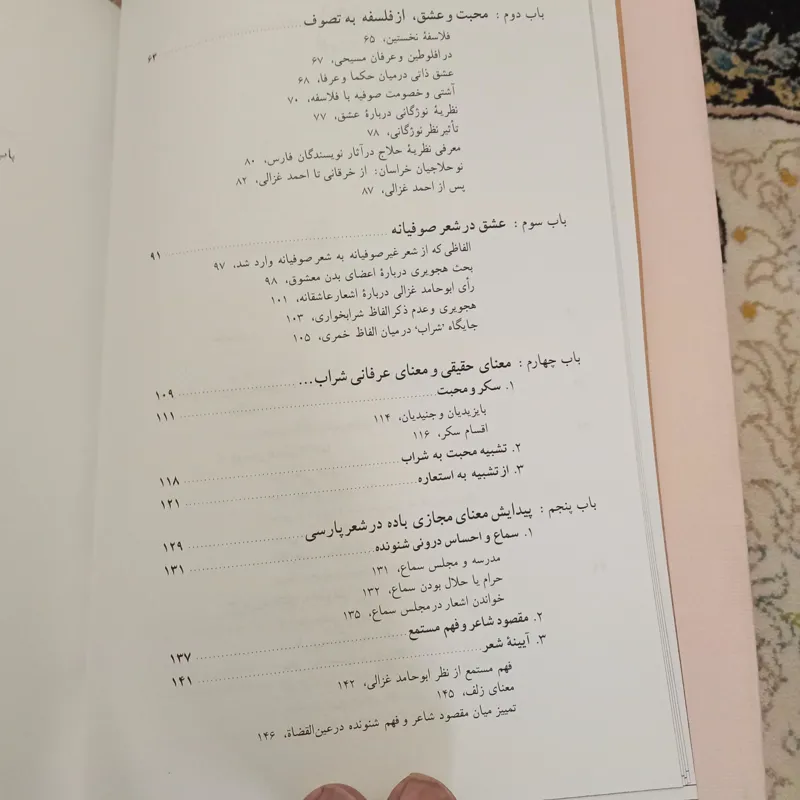 باب دوم : محبت و عشق، از فلسفه به تصوف ........ ۶۳
فلاسفهٔ نخستین، ۶۵
در افلوطین و عرفان مسیحی، ۶۷
عشق ذاتی در میان حکما و عرفا، ۶۸
آشتی و خصومت صوفیه با فلاسفه، ۷۰
نظریهٔ نوژگانی دربارهٔ عشق، ۷۷
تأثیر نظر نوژگانی، ۷۸
معرفی نظریهٔ حلاج در آثار نویسندگان فارس، ۸۰
نوحلاجیان خراسان: از خرقانی تا احمد غزالی، ۸۲
پس از احمد غزالی، ۸۷
باب سوم : عشق در شعر صوفیانه ........ ۹۱
الفاظی که از شعر غیرصوفیانه به شعر صوفیانه وارد شد، ۹۷
بحث هجویری دربارهٔ اعضای بدن معشوق، ۹۸
رأی ابوحامد غزالی دربارهٔ اشعار عاشقانه، ۱۰۱
هجویری و عدم ذکر الفاظ شرابخواری، ۱۰۳
جایگاه ‹شراب› در میان الفاظ خمری، ۱۰۵
باب چهارم : معنای حقیقی و معنای عرفانی شراب... ........ ۱۰۹
۱. سکر و محبت ........ ۱۱۱
بایزیدیان و جنیدیان، ۱۱۴
اقسام سکر، ۱۱۶
۲. تشبیه محبت به شراب ........ ۱۱۸
۳. از تشبیه به استعاره ........ ۱۲۱
باب پنجم : پیدایش معنای مجازی باده در شعر پارسی ........ ۱۲۹
۱. سماع و احساس درونی شنونده ........ ۱۳۱
مدرسه و مجلس سماع، ۱۳۱
حرام یا حلال بودن سماع، ۱۳۲
خواندن اشعار در مجلس سماع، ۱۳۵
۲. مقصود شاعر و فهم مستمع ........ ۱۳۷
۳. آیینهٔ شعر ........ ۱۴۱
فهم مستمع از نظر ابوحامد غزالی، ۱۴۲
معنای زلف، ۱۴۵
تمییز میان مقصود شاعر و فهم شنونده در عین‌القضاة، ۱۴۶